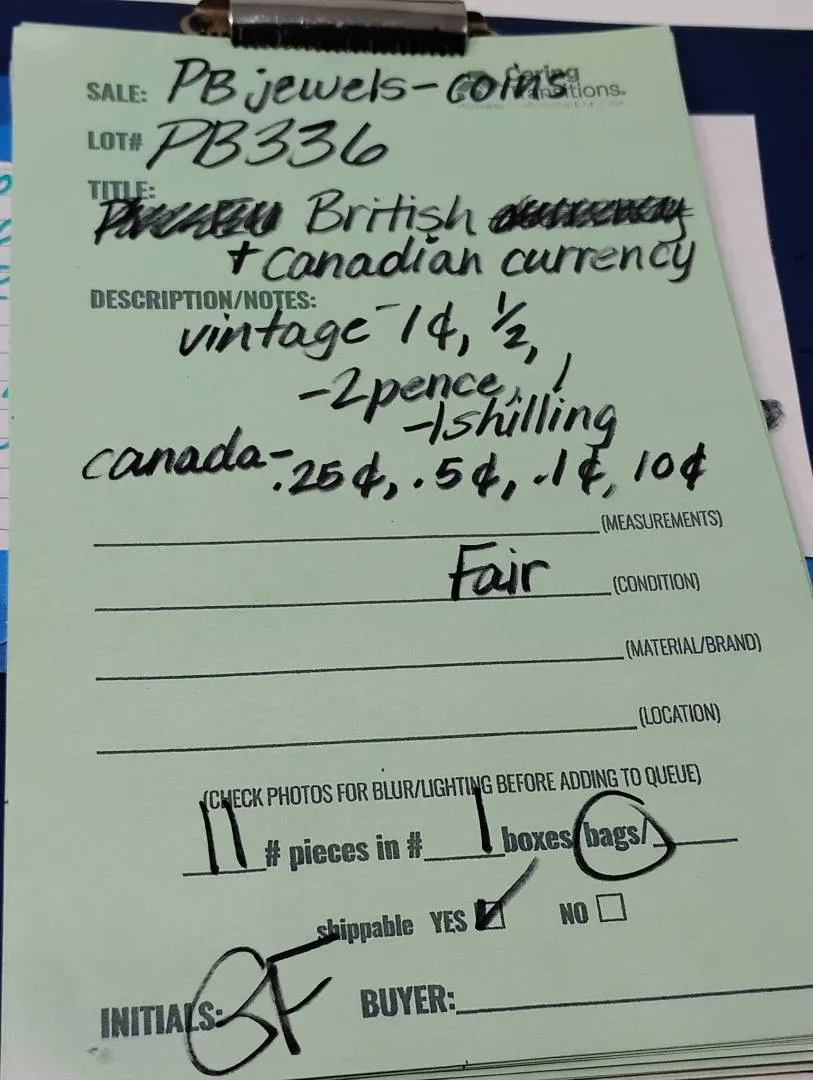 SALE: PB jewels-coins
Caring Transitions.
LOT# PB336
TITLE:
British
+ canadian currency
DESCRIPTION/NOTES:
vintage - 1¢, 1/2,
-2 pence, 1
-1 shilling
canada - .25¢, .5¢, .1¢, 10¢
(MEASUREMENTS)
Fair (CONDITION)
(MATERIAL/BRAND)
(LOCATION)
(CHECK PHOTOS FOR BLUR/LIGHTING BEFORE ADDING TO QUEUE)
11 # pieces in # 1 boxes/bags/
shippable YES NO
INITIALS: BUYER: